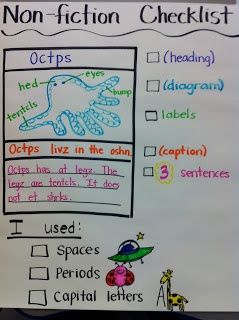 Non-fiction Checklist
Octps
(heading)
eyes
hed
bump
tentcls
(diagram)
labels
Octps livz in the oshn.
(caption)
Octps has at legz. The
legz are tentcls. It does
not et shrks.
3 sentences
I used:
Spaces
Periods
Capital letters A